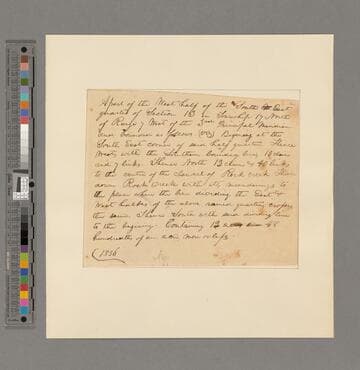 A part of the West half of the South East
quarter of Section 18 in Township 17 North
of Range 7 West of the 3rd Principal Meridian
and bounded as follows (viz) Beginning at the
South East corner of said half quarter thence
West with the Southern boundary line 18 chains
and 7 links. Thence North 12 chains & links
to the centre of the channel of Rock Creek Thence
down Rock Creek with its meanderings to
the place where the line dividing the East &
West halves of the above named quarter crosses
the same Thence South with said dividing line
to the beginning Containing 12 68
hundredths of an acre more or less
(1836